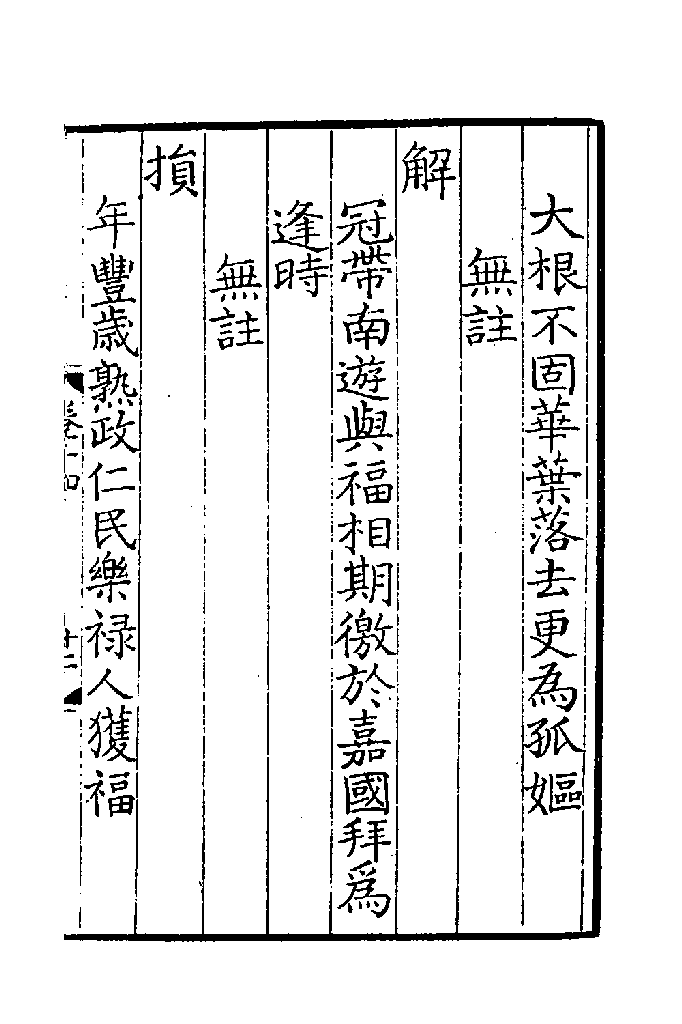 大根不固華葉落去更為孤嫗
無註
解
冠帶南遊與福相期徼於嘉國拜爲
逢時
無註
損
年豐歲熟政仁民樂禄人獲福